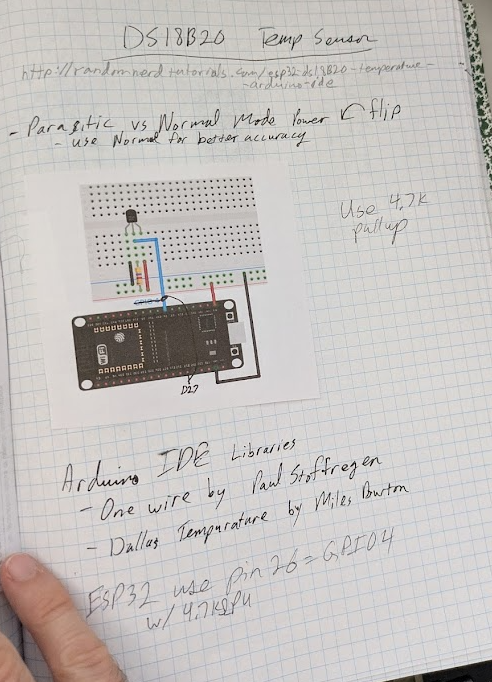 DS18B20 Temp Sensor
http://randomnerdtutorials.com/esp32-ds18b20-temperature-
-arduino-ide
- Parasitic vs Normal Mode Power flip
- use Normal for better accuracy
Use 4.7K
pullup
D27
Arduino IDE Libraries
- One wire by Paul Stoffregen
- Dallas Tempurature by Miles Burton
ESP32 use pin 26 = GPIO4
w/ 4.7KΩ PU